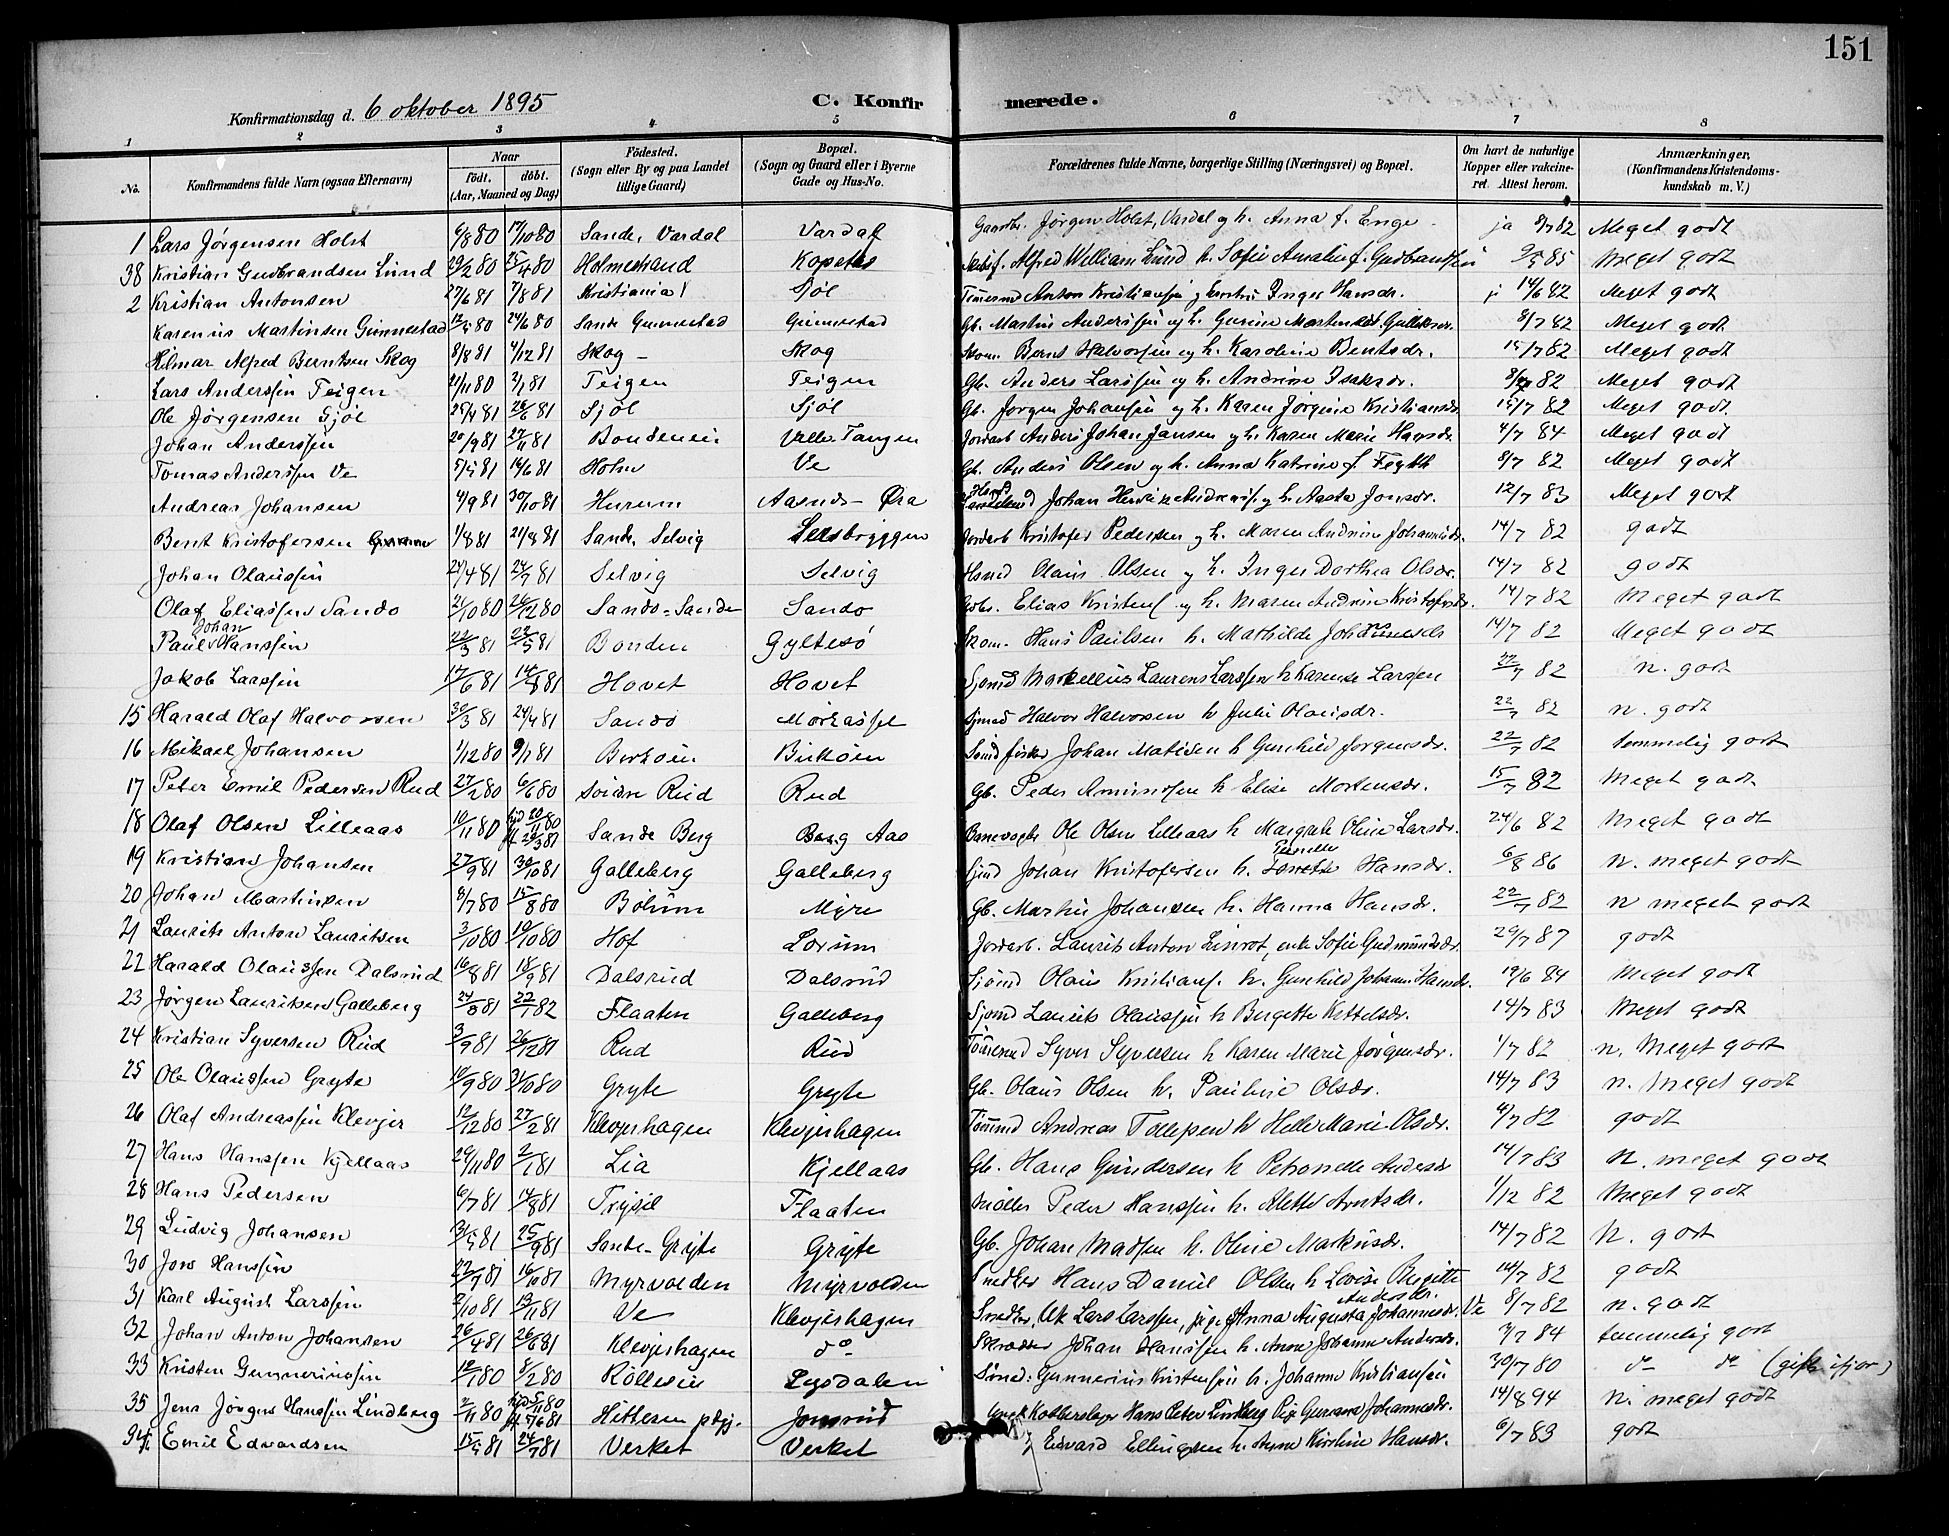 151
Konfirmationsdag d. 6 oktober 1895 C. Konfirmerede.
1 2 3 4 5 6 7 8
No. Konfirmandens fulde Navn (ogsaa Efternavn) Naar født. døbt. (Aar, Maaned og Dag) Fødested. (Sogn eller By og paa Landet tillige Gaard) Bopæl. (Sogn og Gaard eller i Byerne Gade og Hus-No. Forældrenes fulde Navne, borgerlige Stilling (Næringsvei) og Bopæl. Om havt de naturlige Kopper eller vakcineret. Attest herom. Anmærkninger, (Konfirmandens Kristendomskundskab m. V.)
1 Lars Jørgensen Holst 6/8 80 17/10 80 Sande, Vardal Vardal Jørgen Holst, Vardal og h. Anna f. Enge ja 8/7 82 Meget godt
38 Kristian Gudbrandsen Lund 29/2 80 25/4 80 Holmestrand Kopstad Alfred William Lund h. Sofie Amalie f. Gudbrandsen 85 Meget godt
2 Kristian Antonsen 27/6 81 7/8 81 Kristiania Sjøl Anton Kristiansen og hustru Inger Hansdr. 14/6 82 Meget godt
Karenius Martinsen Gunnestad 80 24/6 80 Sande Gunnestad Gunnestad Gb. Martin Anderssen og h. Gurine Mortensdr. 8/7 82 Meget godt
Hilmar Alfred Berntsen Skog 8/8 81 4/12 81 Skog - Skog Skom. Bernt Halvorssen og h. Karoline Bentsdr. 15/7 82 Meget godt
Lars Anderssen Teigen 21/11 80 2/1 81 Teigen Teigen Gb. Anders Larssen og h. Andrine Isaksdr. 8/7 82 Meget godt
Ole Jørgensen Sjøl 25/4 81 26/6 81 Sjøl Sjøl Gb. Jørgen Johansen og h. Karen Jørgine Kristiansdr. 15/7 82 Meget godt
Johan Anderssen 20/9 81 27/11 81 Bondeneie Valle Tangen Jordarb Anders Johan Jansen og h. Karen Marie Hansdr. 4/7 84 Meget godt
Tomas Anderssen Ve 5/5 81 14/6 81 Holm Ve Gb. Anders Olsen og h. Anna Katrine f. 8/7 82 Meget godt
Andreas Johansen 4/9 81 30/10 81 Hurum Aasnds Øra Johan Henrik Andreass. og h. Aasta Jonsdr. 12/7 83 Meget godt
Bent Kristofersen 1/8 81 21/8 81 Sande, Selvig Selsbryggen Jordarb Kristofer Pedersen og h. Maren Andrine Johannesdr. 14/7 82 godt
Johan Olaussen 24/4 81 24/7 81 Selvig Selvig Hsmd Olaus Olsen og h. Inger Dorthea Olsdr. 14/7 82 godt
Olaf Eliassen Sandø 21/10 80 26/12 80 Sandø-Sande Sandø Elias Kristens. og h. Maren Andrine Kristofersdr. 14/7 82 Meget godt
Paul Johan Hanssen 22/3 81 22/5 81 Bonden Gyltesø Skom. Hans Paulsen h. Mathilde Johannesdr 14/7 82 Meget godt
Jakob Larssen 17/6 81 14/8 81 Hovet Hovet Sjømd Markellius Laurens Larssen h Karense Larsen 22/7 82 n. godt
15 Harald Olaf Halvorssen 30/3 81 24/4 81 Sandø Mørkassel Sjmd Halvor Halvorsen h Julie Olausdr. 22/7 82 n. godt
16 Mikael Johansen 1/12 80 9/1 81 Berkøen Birkøen fisker Johan Matisen h Gunhild Jørgensdr. 22/7 82 temmelig godt
17 Peter Emil Pedersen Rud 27/2 80 6/6 80 Søndre Rud Rud Gb. Peder Amundsen h. Elise Mortensdr. 15/7 82 Meget godt
18 Olaf Olsen Lilleaas 10/11 80 hjd 20/11 80 Sande Berg Berg Aas Banevogter Ole Olsen Lilleaas h Margrete Oline Larsdr. 24/6 82 Meget godt
19 Kristian Johansen 27/9 81 30/10 81 Galleberg Galleberg Sjmd Johan Kristofersen h. Pernelle Hansdr. 6/8 86 n. meget godt
20 Johan Martinsen 8/7 80 15/8 80 Bølum Myre Gb. Martin Johansen h. Hanna Hansdr. 22/7 82 n meget godt
21 Laurits Anton Lauritsen 3/10 80 10/10 80 Hof Lorum Jordarb. Laurits Anton Linrot, enke Sofie Gudmundsdr. 29/7 87 godt
22 Harald Olaussen Dalsrud 16/8 81 18/9 81 Dalsrud Dalsrud Sjømd Olaus Kristians. h. Gunhild Johanne Hansdr. 19/6 84 Meget godt
23 Jørgen Lauritsen Galleberg 24/8 81 22/1 82 Flaaten Galleberg Sjømd Laurits Olaussen h Bergette Kettelsdr. 14/7 83 Meget godt
24 Kristian Syversen Rud 3/9 81 26/12 81 Rud Rud Tømmermd Syver Syversen h Karen Marie Jørgensdr. 1/7 82 n. Meget godt
25 Ole Olaussen Gryte 10/9 80 31/10 80 Gryte Gryte Gb. Olaus Olsen h. Pauline Olsdr. 14/7 83 n. meget godt
26 Olaf Andreassen Klevjer 12/12 80 27/2 81 Klevjerhagen Klevjerhagen Tømmd Andreas Tollefsen h Helle Marie Olsdr. 4/7 82 godt
27 Hans Hanssen Kjellaas 29/11 80 2/1 81 Lia Kjellaas Gb. Hans Gundersen h Petronelle Andersdr 14/7 83 n. meget godt
28 Hans Pedersen 6/7 81 14/8 81 Trysil Flaaten Møller Peder Hanssen h. Alette Arntsdr. 1/12 82 Meget godt
29 Ludvig Johansen 31/5 81 25/9 81 Sande-Gryte Gryte Gb. Johan Madsen h. Oline Markusdr. 14/7 82 N. godt
30 Jens Hanssen 22/7 81 16/10 81 Myrvolden Myrvolden Snedker Hans Daniel Olsen h Lovise Birgitte Andersdr. 14/7 82 godt
31 Karl August Larssen 2/10 81 13/11 81 Ve Klevjerhagen Snedker, Uk Lars Larssen, pige Anna Augusta Johannesdr. Ve 8/7 82 n. godt
32 Johan Anton Johansen 26/4 81 26/6 81 Klevjerhagen do Skrædder Johan Hanssen h. Anne Johanne Andersdr. 3/7 84 temmelig godt
33 Kristen Gunneriussen 12/1 80 8/2 80 Røllesie Lysdalen Sømd: Gunnerius Kristensen h. Johanne Kristiansen 30/7 80 do do (gift ifjor)
35 Jens Jørgen Hanssen Lindberg 2/11 80 hjd 5/11 80 Hitteren pstgj. Jonsrud Kobberslager Hans Peter Lindberg Pige Gurana Johannesdr. 14/8 94 n. meget godt
34 Emil Edvardsen 15/5 81 24/7 81 Verket Verket Edvard Ellingsen h. Anne Kirstine Hansdr. 6/7 83 godt